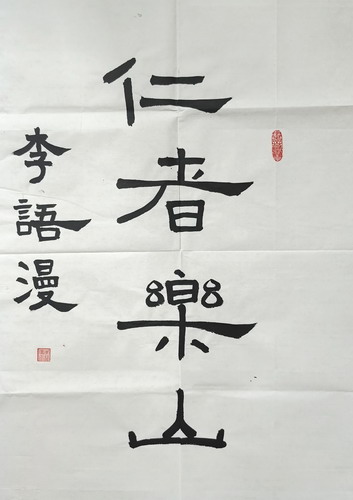 仁者樂山
李語漫